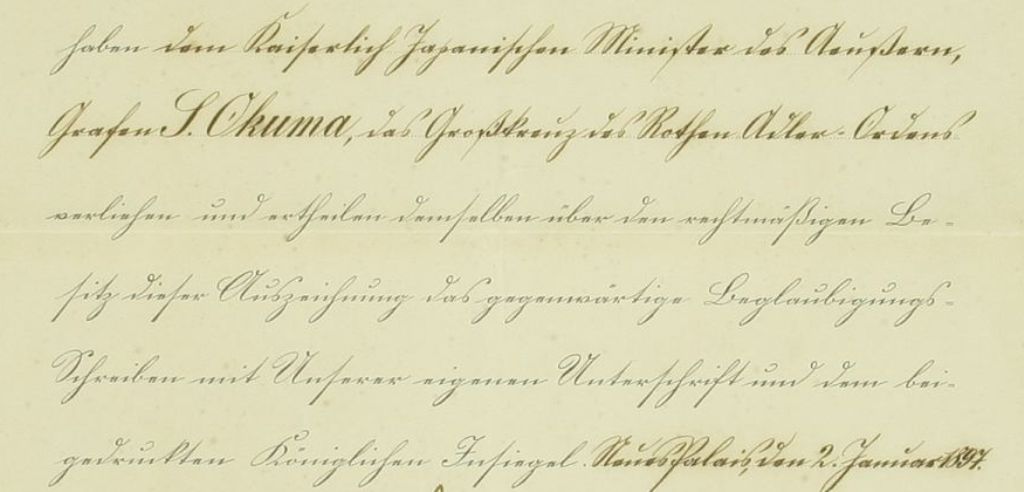 haben dem Kaiserlich Japanischen Minister des Aeußern,
Grafen S. Okuma, das Großkreuz des Rothen Adler-Ordens
verliehen und ertheilen demselben über den rechtmäßigen Be-
sitz dieser Auszeichnung das gegenwärtige Beglaubigungs-
Schreiben mit Unserer eigenen Unterschrift und dem bei-
gedruckten Königlichen Insiegel. Neues Palais, den 2. Januar 1897.